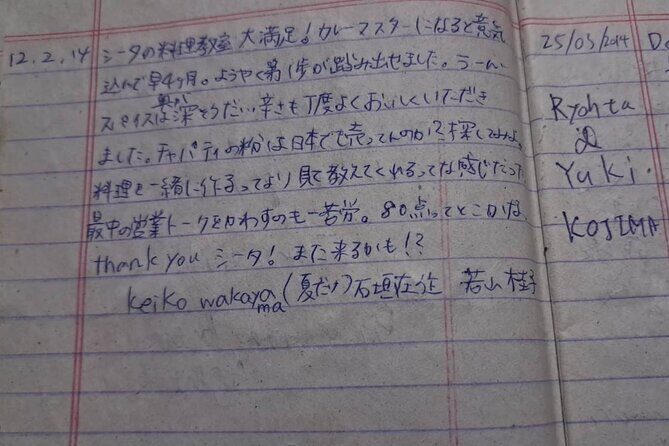 12.2.14 シータの料理教室 大満足！カレーマスターになると意気
込んで早4ヶ月。ようやく第1歩が踏み出せました。うーん
スパイスは奥が深そうだ… 辛さも丁度よくおいしくいただき
ました。チャパティの粉は日本でも売ってんのか!?探してみよ。
料理を一緒に作るってより見て教えてくれるってな感じだった
最中の営業トークをかわすのも一苦労。80点ってとこかな
thank you シータ！また来るかも!?
Keiko wakayama (夏だけ)石垣在住 若山桂子
25/03/2014
Ryohta
Yuki.
KOJIMA